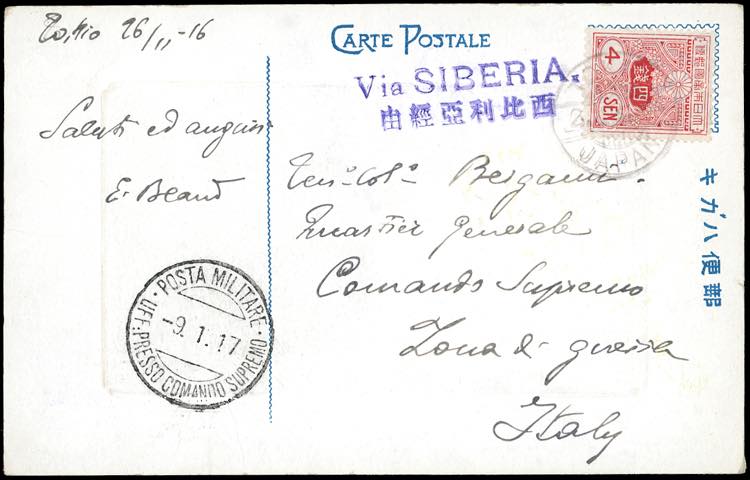 Tokio 26/11-16
CARTE POSTALE
Via SIBERIA.
由經亞利比西
4
錢四
SEN
JAPAN
キガハ便郵
Saluti ed auguri
E.
Ten. Col. Bergami
Quartier Generale
Comando Supremo
Zona di guerra
Italy
POSTA MILITARE
-9.1.17
UFF: PRESSO COMANDO SUPREMO